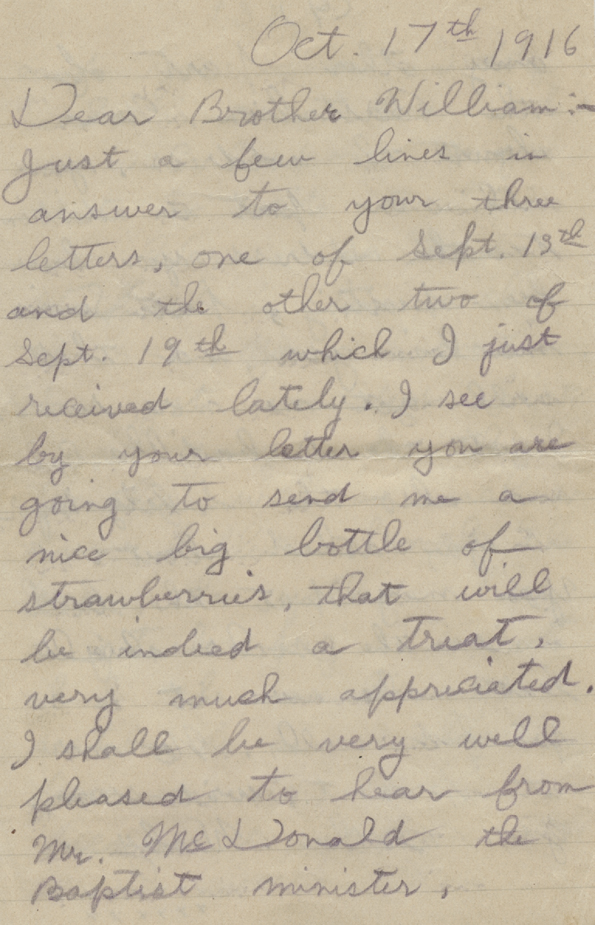 Oct. 17th 1916
Dear Brother William:-
Just a few lines in
answer to your three
letters, one of Sept. 13th
and the other two of
Sept. 19th which I just
received lately. I see
by your letter you are
going to send me a
nice big bottle of
strawberries, that will
be indeed a treat,
very much appreciated.
I shall be very well
pleased to hear from
Mr. McDonald the
Baptist minister,